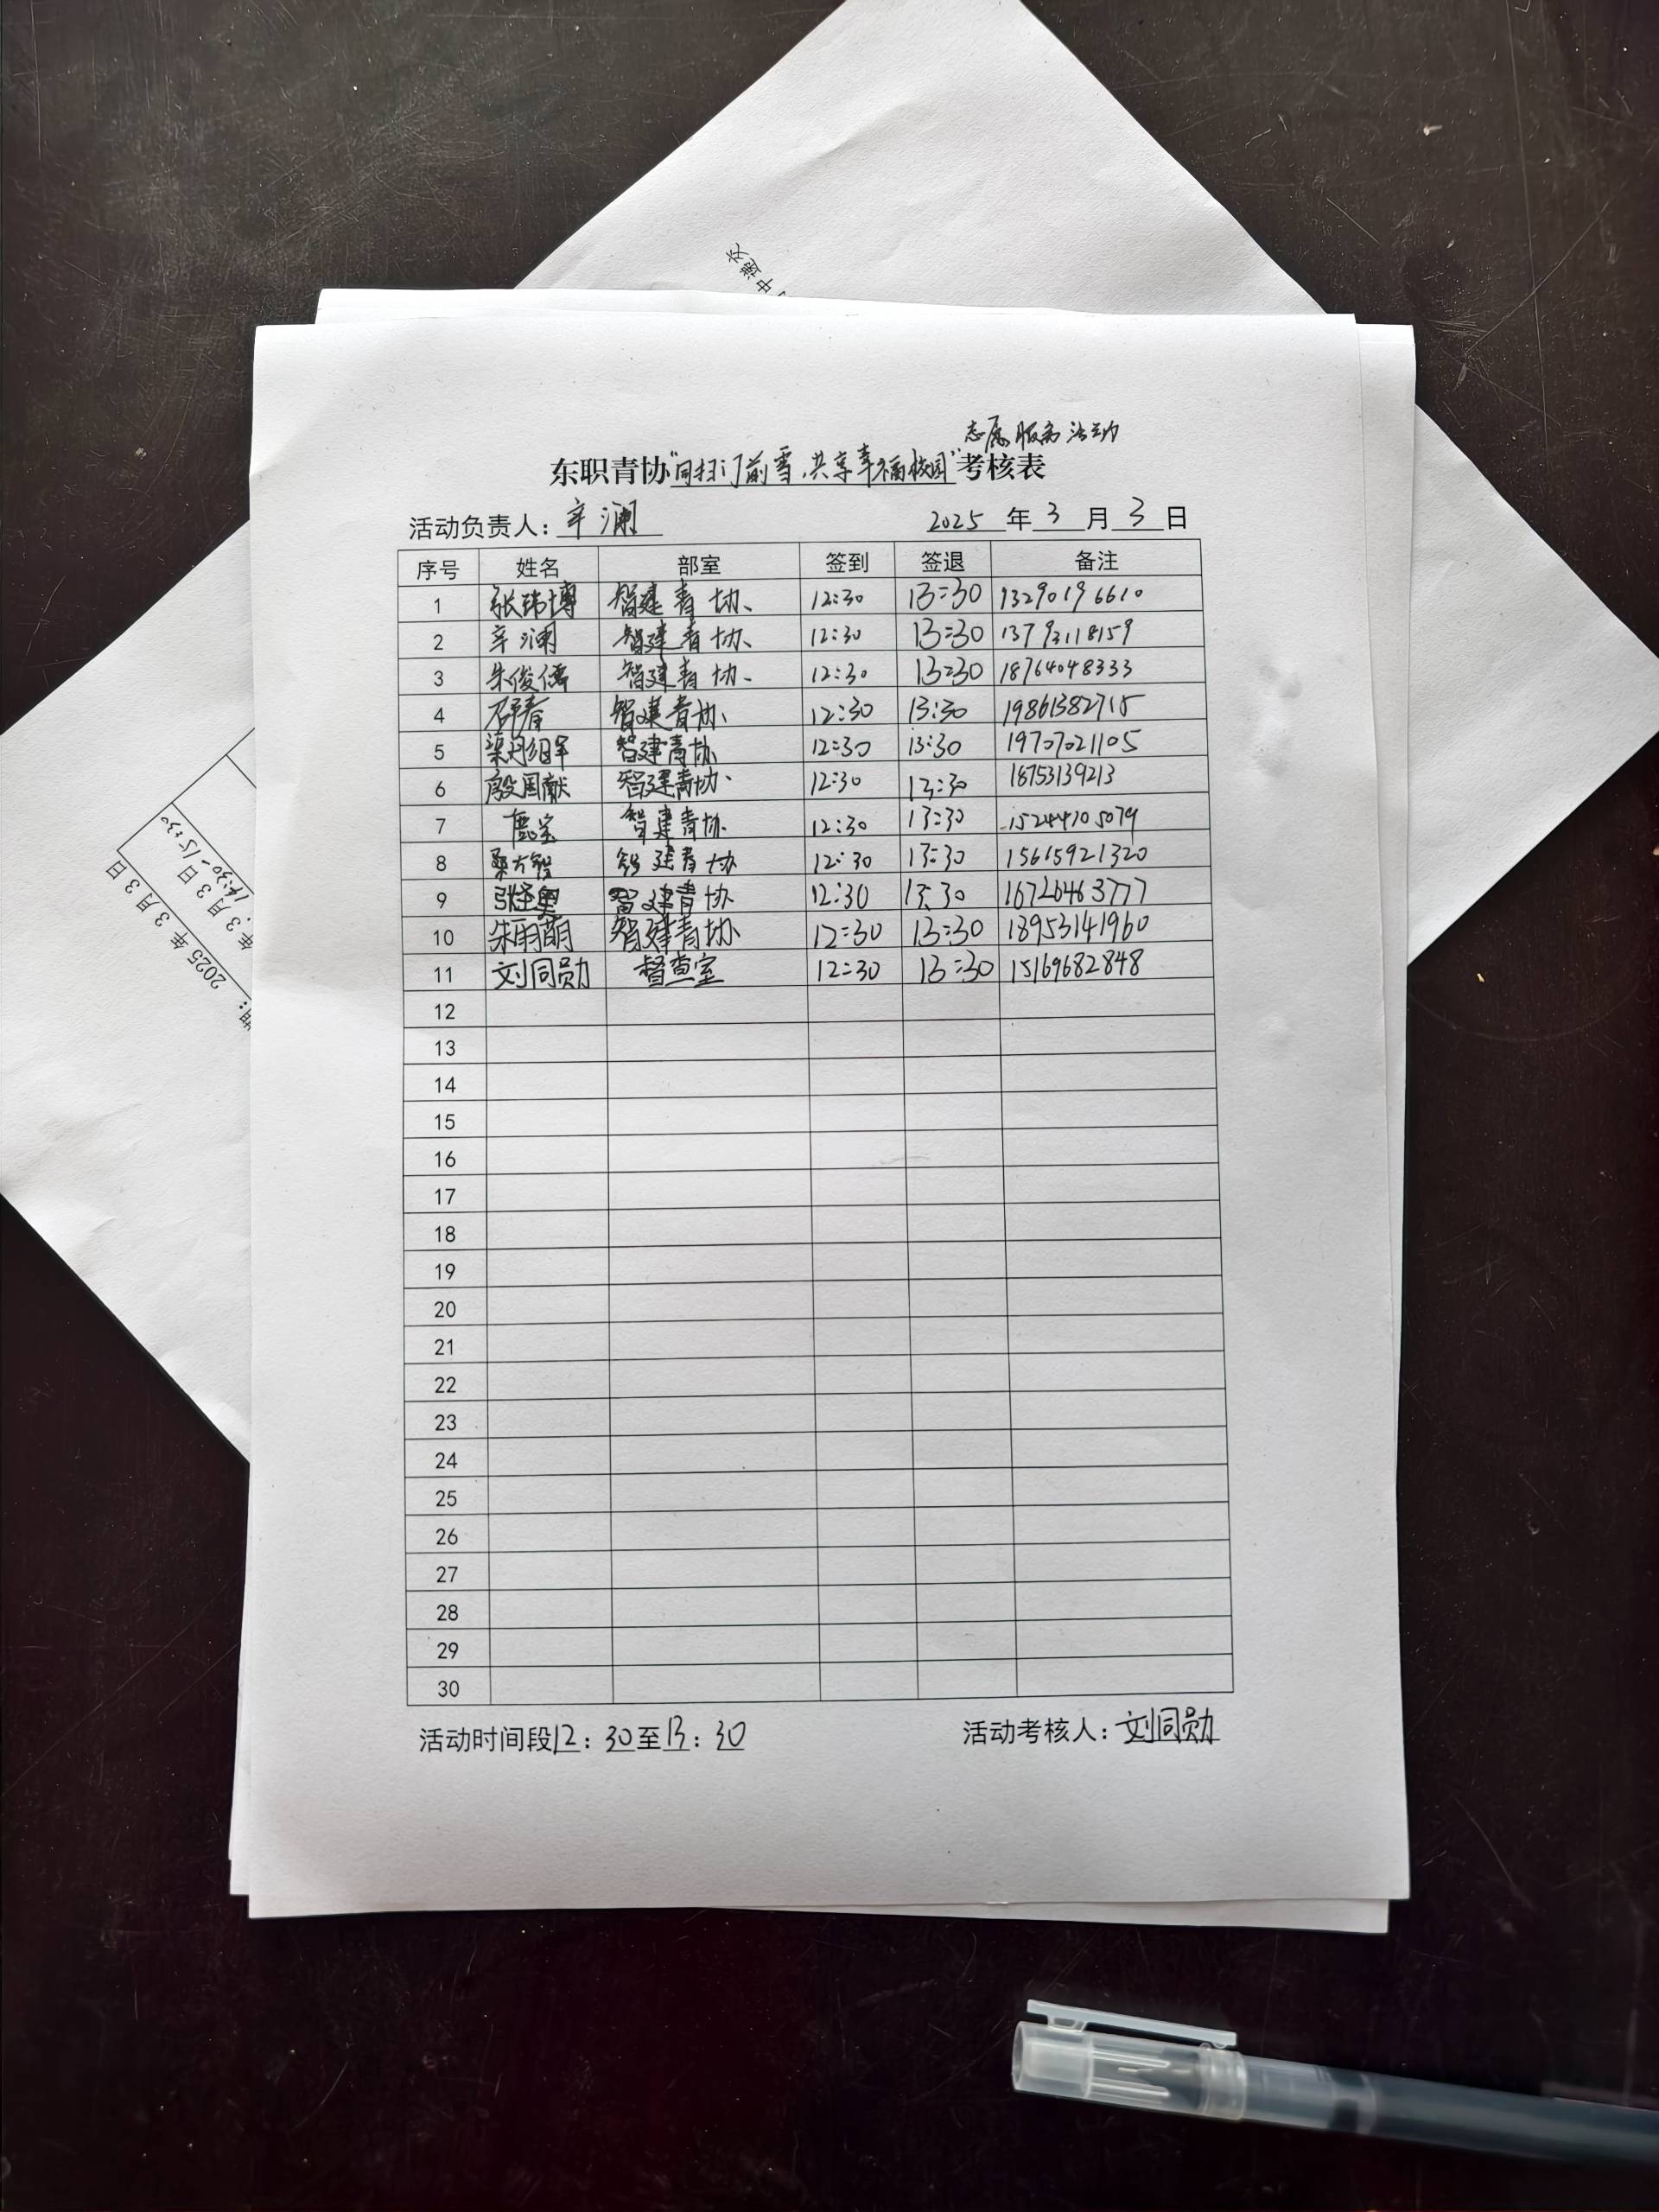 交
通
中
志愿服务活动
东职青协"同扫门前雪、共享幸福校园"考核表
活动负责人：辛澜 2025年3月3日
序号 姓名 部室 签到 签退 备注
1 张玮博 智建青协、 12:30 13:30 13290196610
2 辛澜 智建青协、 12:30 13:30 13793118159
3 朱俊儒 智建青协、 12:30 13:30 18764048333
4 智建青协、 12:30 13:30 19861382715
5 智建青协 12:30 13:30 19707021105
6 殷国献 智建青协、 12:30 13:30 18753139213
7 鹿宝 智建青协 12:30 13:30 15244105079
8 桑方智 智建青协 12:30 13:30 15615921320
9 智建青协 12:30 13:30 16726463777
10 朱雨萌 智建青协 12:30 13:30 18953141960
11 刘同勋 督查室 12:30 13:30 15169682848
12
13
14
15
16
17
18
19
20
21
22
23
24
25
26
27
28
29
30
活动时间段12：30至13：30 活动考核人：刘同勋
2025年3月3日
年3月3日
14:30-15:30